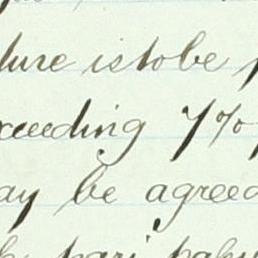 ture is to be
xceeding 7%
ay be agreed
pari passu